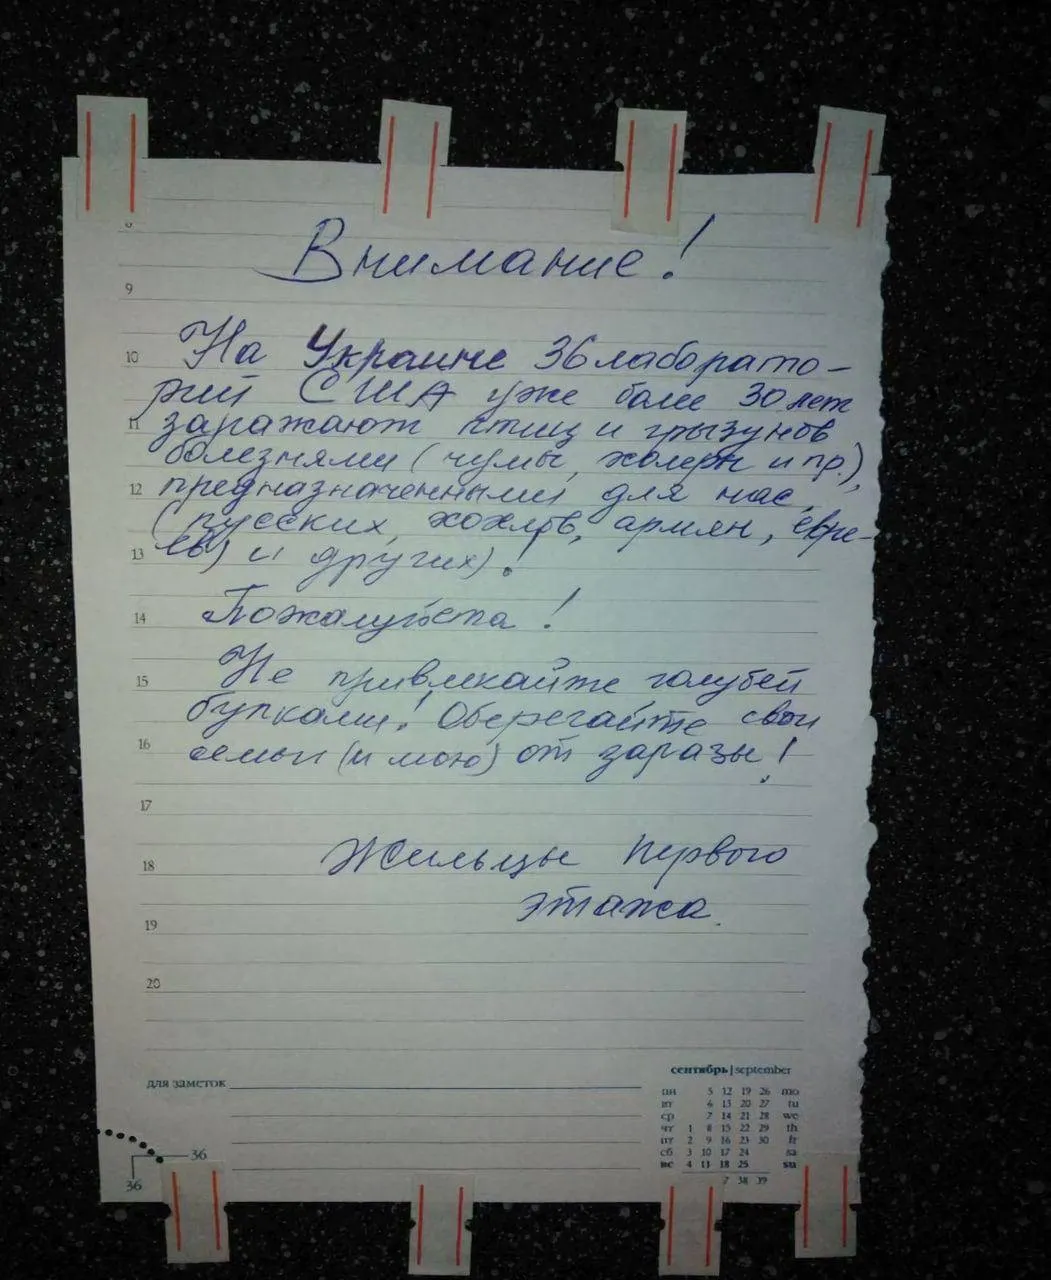 8
Внимание!
9
На Украине 36 лаборато-
10
рий США уже более 30 лет
11
заражают птиц и грызунов
болезнями (чумы, холеры и пр.),
12
предназначенными для нас
(русских, хохлов, армян, евре-
13
ев) и других)!
14
Пожалуйста!
Не привлекайте голубей
15
булками! Оберегайте свои
16
семьи (и мою) от заразы!
17
Жильцы первого
18
этажа.
19
20
сентябрь | september
для заметок
пн 5 12 19 26 mo
вт 6 13 20 27 tu
ср 7 14 21 28 we
чт 1 8 15 22 29 th
пт 2 9 16 23 30 fr
сб 3 10 17 24 sa
вс 4 11 18 25 su
7 38 39
36
36